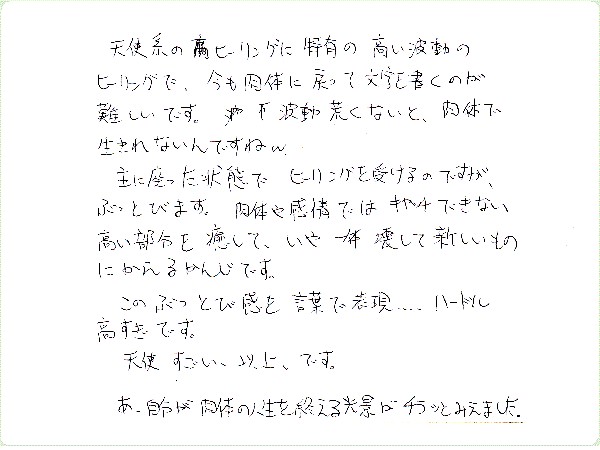 天使系のヒーリングに特有の高い波動の
ヒーリングで、今も肉体に戻って文字を書くのが
難しいです。波動荒くないと、肉体で
生きれないんですねw
主に座った状態でヒーリングを受けるのですが、
ぶっとびます。肉体や感情ではキャッチできない
高い部分を癒して、いや一体壊して新しいもの
にかえるかんじです。
このぶっとび感を言葉で表現....ハードル
高すぎです。
天使すごい、以上、です。
あ、自分が肉体の人生を終える光景がチラッとみえました。